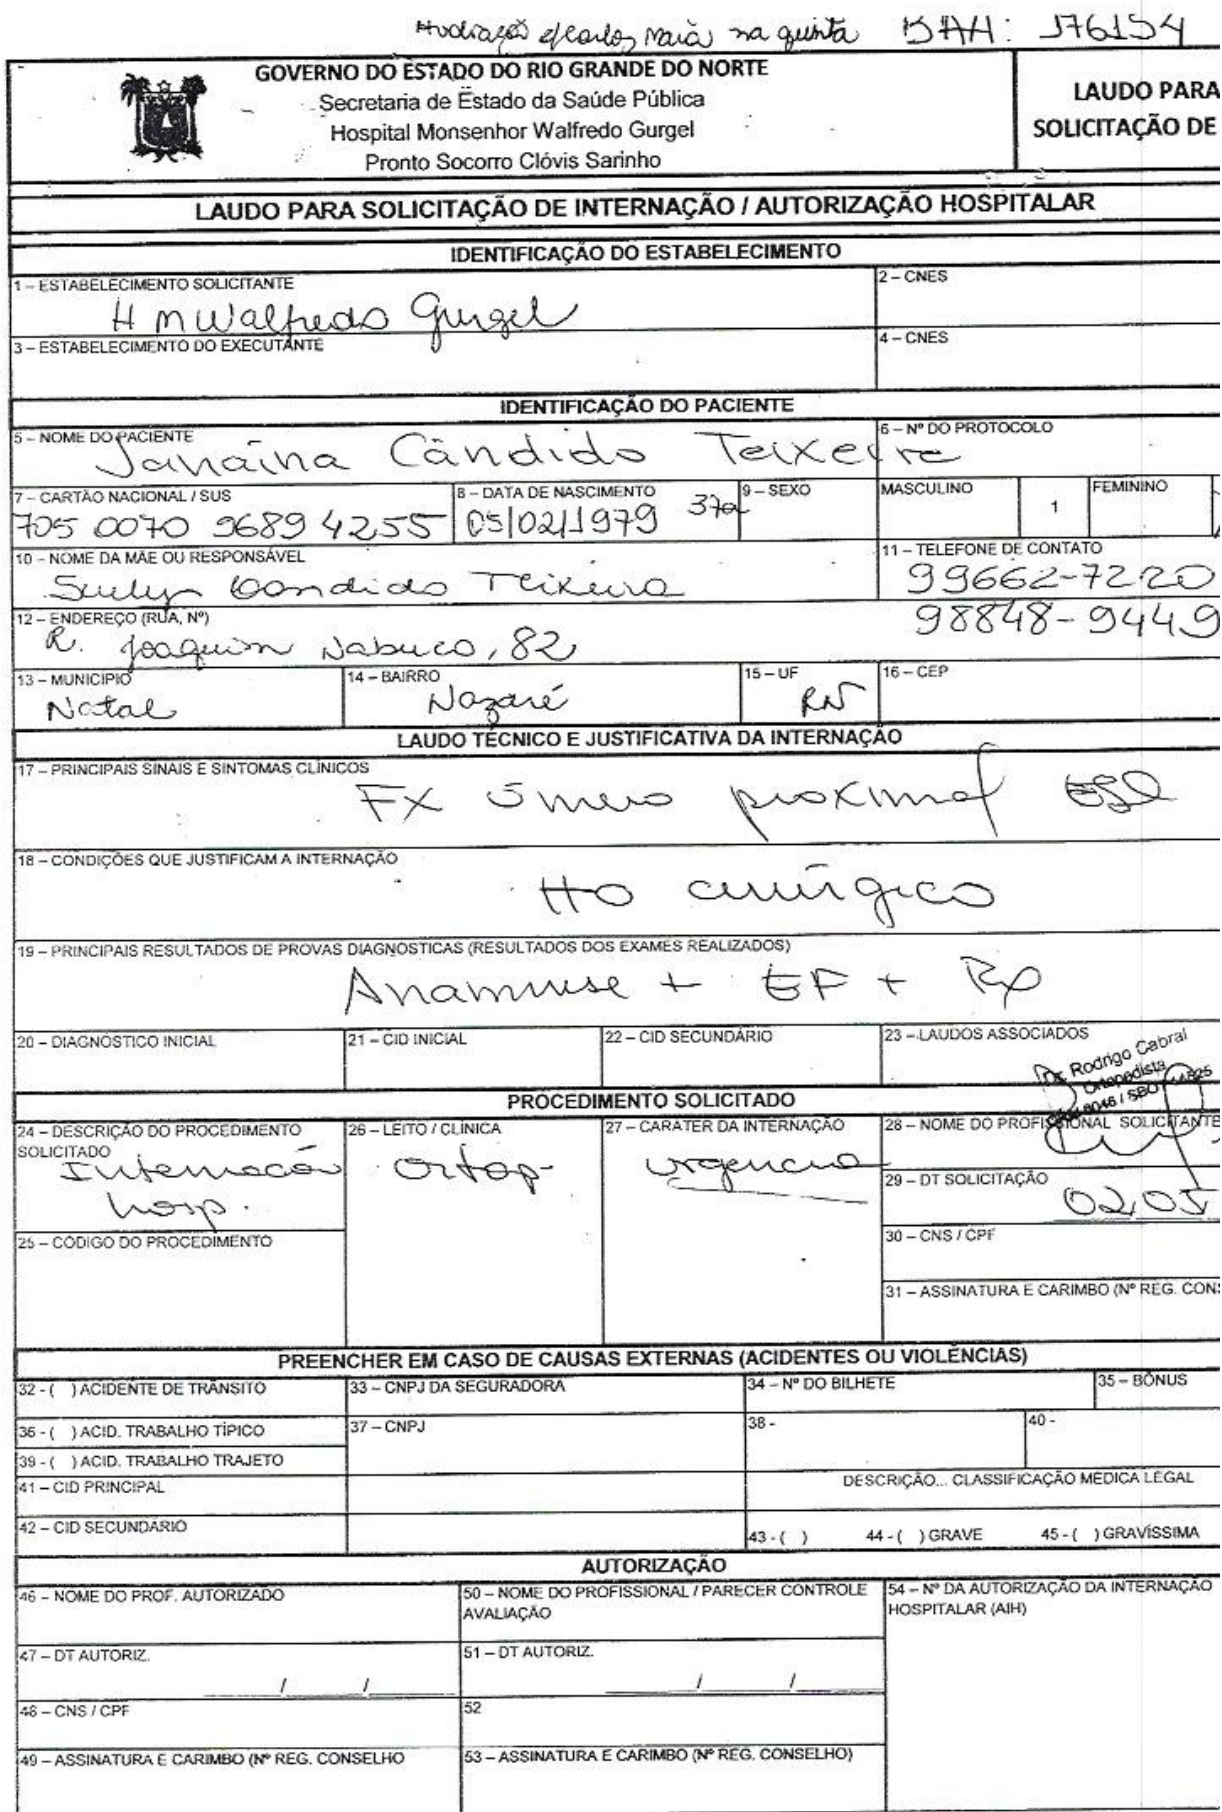 na quinta BAH: 176154
GOVERNO DO ESTADO DO RIO GRANDE DO NORTE
Secretaria de Estado da Saúde Pública
Hospital Monsenhor Walfredo Gurgel
Pronto Socorro Clóvis Sarinho
LAUDO PARA
SOLICITAÇÃO DE
LAUDO PARA SOLICITAÇÃO DE INTERNAÇÃO / AUTORIZAÇÃO HOSPITALAR
IDENTIFICAÇÃO DO ESTABELECIMENTO
1 – ESTABELECIMENTO SOLICITANTE
H M Walfredo Gurgel
2 – CNES
3 – ESTABELECIMENTO DO EXECUTANTE
4 – CNES
IDENTIFICAÇÃO DO PACIENTE
5 – NOME DO PACIENTE
Janaína Cândido Teixeira
6 – Nº DO PROTOCOLO
7 – CARTÃO NACIONAL / SUS
705 0070 9689 4255
8 – DATA DE NASCIMENTO
05/02/1979 37a
9 – SEXO
MASCULINO 1 FEMININO
10 – NOME DA MÃE OU RESPONSÁVEL
Candido Teixeira
11 – TELEFONE DE CONTATO
99662-7220
98848-9449
12 – ENDEREÇO (RUA, Nº)
R. Joaquim Nabuco, 82
13 – MUNICIPIO
Natal
14 – BAIRRO
Nazaré
15 – UF
RN
16 – CEP
LAUDO TÉCNICO E JUSTIFICATIVA DA INTERNAÇÃO
17 – PRINCIPAIS SINAIS E SINTOMAS CLÍNICOS
FX úmero proximal
18 – CONDIÇÕES QUE JUSTIFICAM A INTERNAÇÃO
tto cirúrgico
19 – PRINCIPAIS RESULTADOS DE PROVAS DIAGNOSTICAS (RESULTADOS DOS EXAMES REALIZADOS)
Anamnese + EF + Rx
20 – DIAGNÓSTICO INICIAL
21 – CID INICIAL
22 – CID SECUNDÁRIO
23 – LAUDOS ASSOCIADOS
Dr. Rodrigo Cabral
Ortopedista
PROCEDIMENTO SOLICITADO
24 – DESCRIÇÃO DO PROCEDIMENTO
SOLICITADO
Internação
hosp.
26 – LEITO / CLÍNICA
Ortop-
27 – CARATER DA INTERNAÇÃO
urgencia
28 – NOME DO PROFISSIONAL SOLICITANTE
29 – DT SOLICITAÇÃO
02,05
25 – CODIGO DO PROCEDIMENTO
30 – CNS / CPF
31 – ASSINATURA E CARIMBO (Nº REG. CONS
PREENCHER EM CASO DE CAUSAS EXTERNAS (ACIDENTES OU VIOLÊNCIAS)
32 - ( ) ACIDENTE DE TRÂNSITO
33 – CNPJ DA SEGURADORA
34 – Nº DO BILHETE
35 – BÔNUS
36 - ( ) ACID. TRABALHO TÍPICO
37 – CNPJ
38 -
40 -
39 - ( ) ACID. TRABALHO TRAJETO
41 – CID PRINCIPAL
DESCRIÇÃO... CLASSIFICAÇÃO MÉDICA LEGAL
42 – CID SECUNDÁRIO
43 - ( ) 44 - ( ) GRAVE 45 - ( ) GRAVÍSSIMA
AUTORIZAÇÃO
46 – NOME DO PROF. AUTORIZADO
50 – NOME DO PROFISSIONAL / PARECER CONTROLE
AVALIAÇÃO
54 – Nº DA AUTORIZAÇÃO DA INTERNAÇÃO
HOSPITALAR (AIH)
47 – DT AUTORIZ.
/ /
51 – DT AUTORIZ.
/ /
48 – CNS / CPF
52
49 – ASSINATURA E CARIMBO (Nº REG. CONSELHO
53 – ASSINATURA E CARIMBO (Nº REG. CONSELHO)